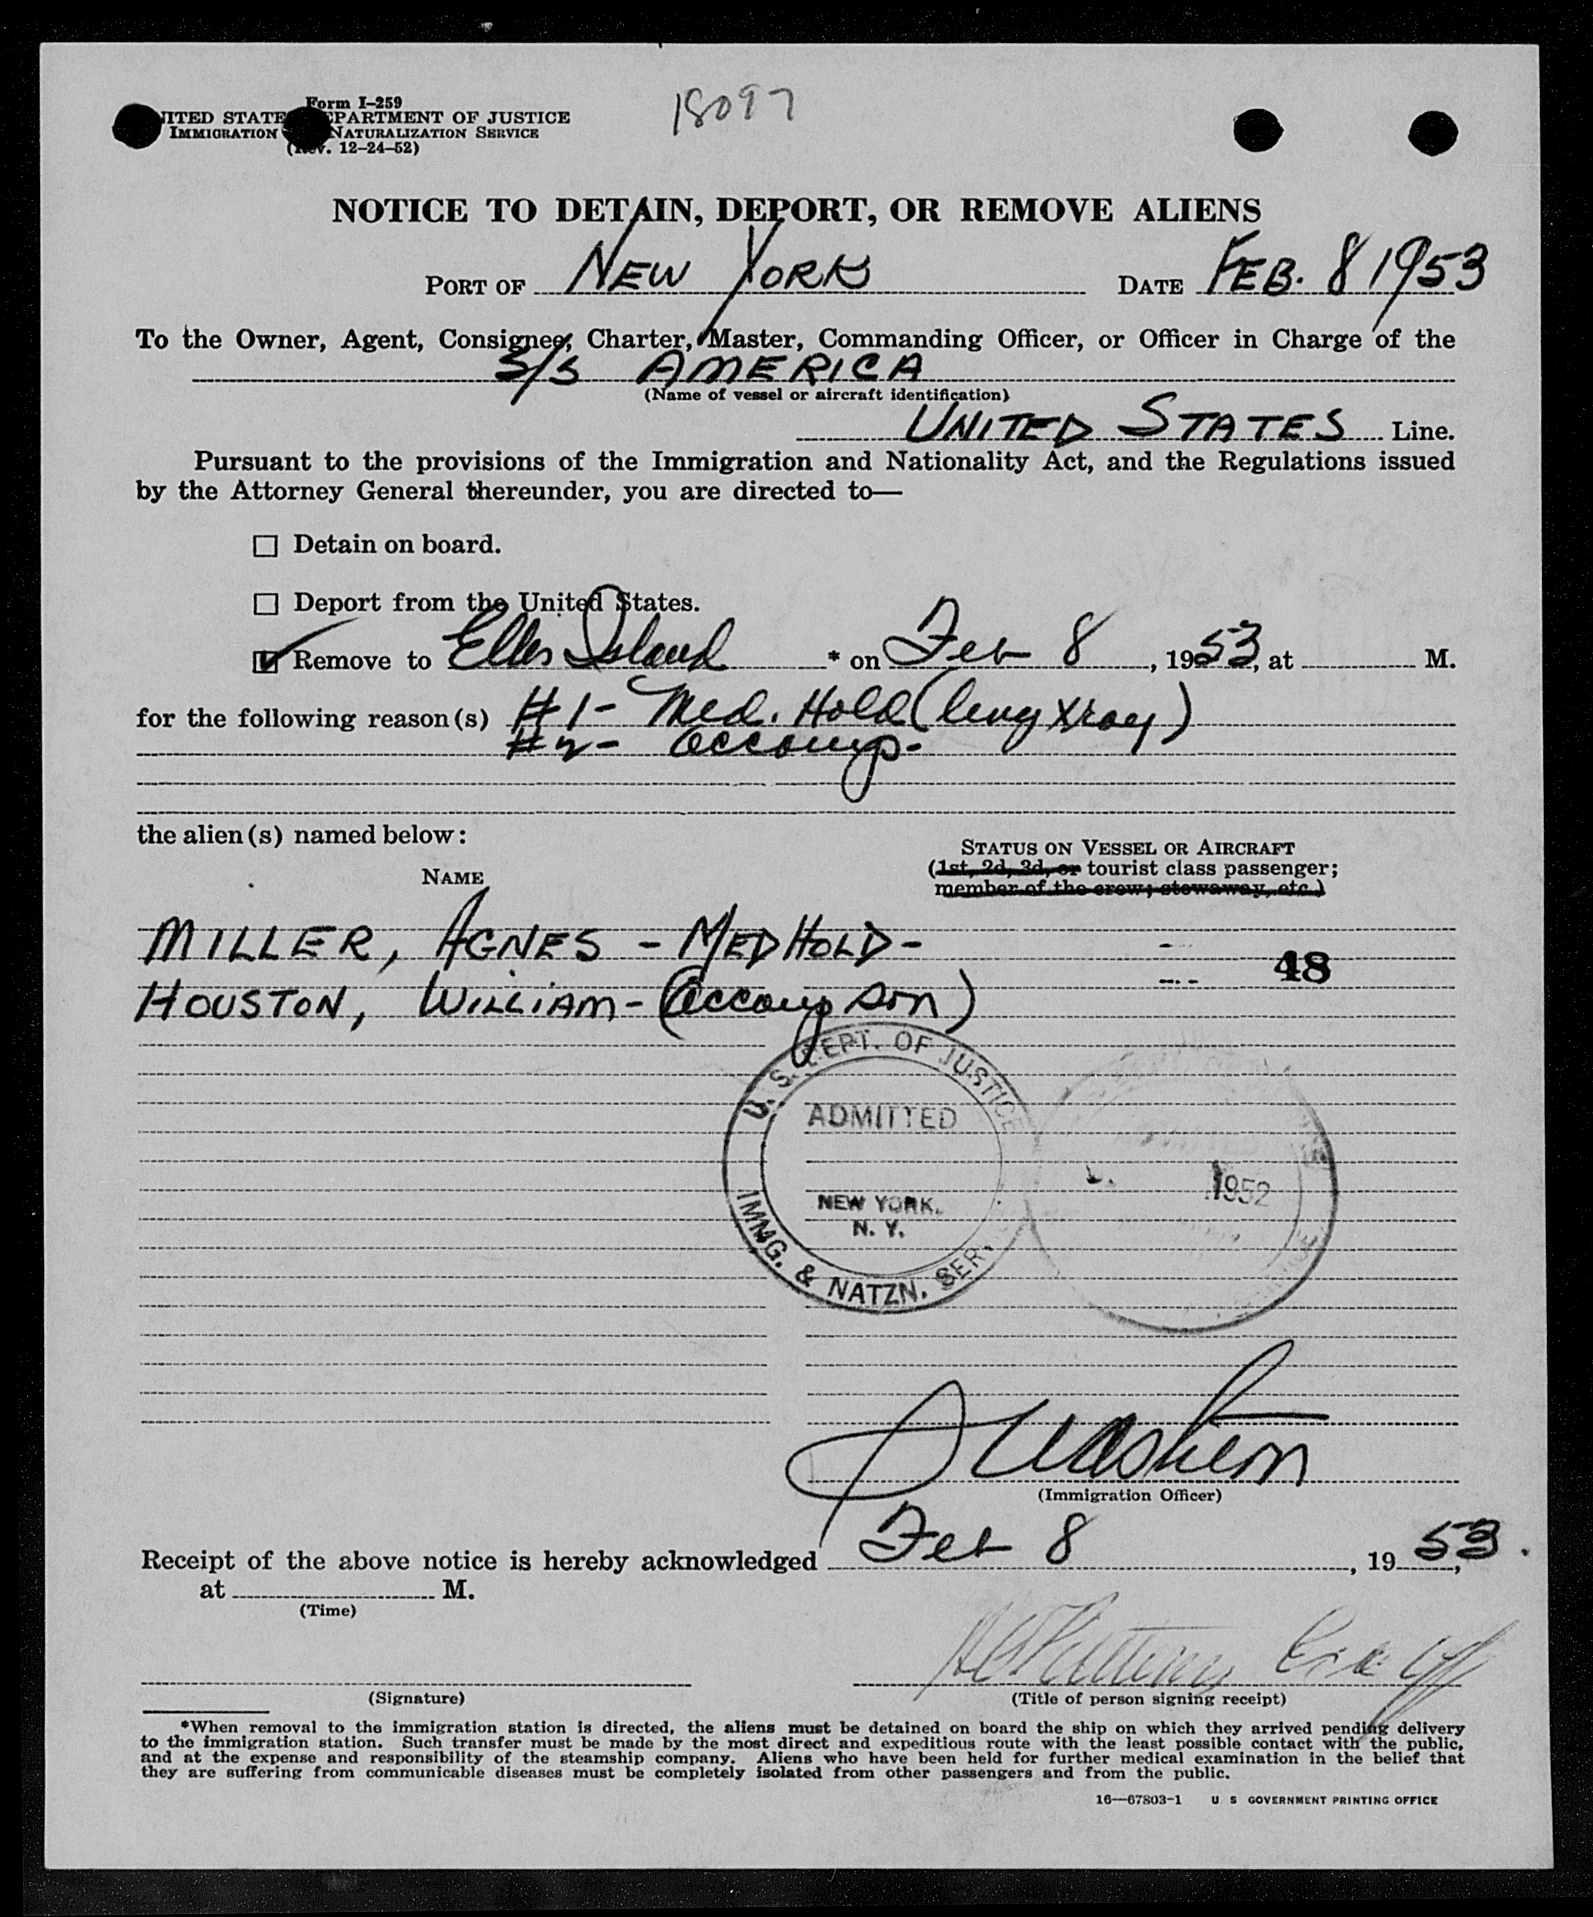 18097
Form I-259
UNITED STATES DEPARTMENT OF JUSTICE
IMMIGRATION NATURALIZATION SERVICE
(Rev. 12-24-52)
NOTICE TO DETAIN, DEPORT, OR REMOVE ALIENS
PORT OF NEW YORK DATE FEB. 8 1953
To the Owner, Agent, Consignee, Charter, Master, Commanding Officer, or Officer in Charge of the
S/S AMERICA
(Name of vessel or aircraft identification)
UNITED STATES Line.
Pursuant to the provisions of the Immigration and Nationality Act, and the Regulations issued
by the Attorney General thereunder, you are directed to—
☐ Detain on board.
☐ Deport from the United States.
☑ Remove to Ellis Island * on Feb 8, 1953, at M.
for the following reason(s) #1- Med. Hold (lung xray)
#2- accomp.
the alien(s) named below:
STATUS ON VESSEL OR AIRCRAFT
NAME (1st, 2d, 3d, or tourist class passenger;
member of the crew; stowaway, etc.)
MILLER, AGNES - MED HOLD -
48
HOUSTON, WILLIAM - (accomp son)
U. S. DEPT. OF JUSTICE
ADMITTED
1952
NEW YORK.
N. Y.
IMMG. & NATZN. SER.
(Immigration Officer)
Receipt of the above notice is hereby acknowledged Feb 8, 1953.
at M.
(Time)
(Signature) (Title of person signing receipt)
*When removal to the immigration station is directed, the aliens must be detained on board the ship on which they arrived pending delivery
to the immigration station. Such transfer must be made by the most direct and expeditious route with the least possible contact with the public,
and at the expense and responsibility of the steamship company. Aliens who have been held for further medical examination in the belief that
they are suffering from communicable diseases must be completely isolated from other passengers and from the public.
16—67803-1 U S GOVERNMENT PRINTING OFFICE